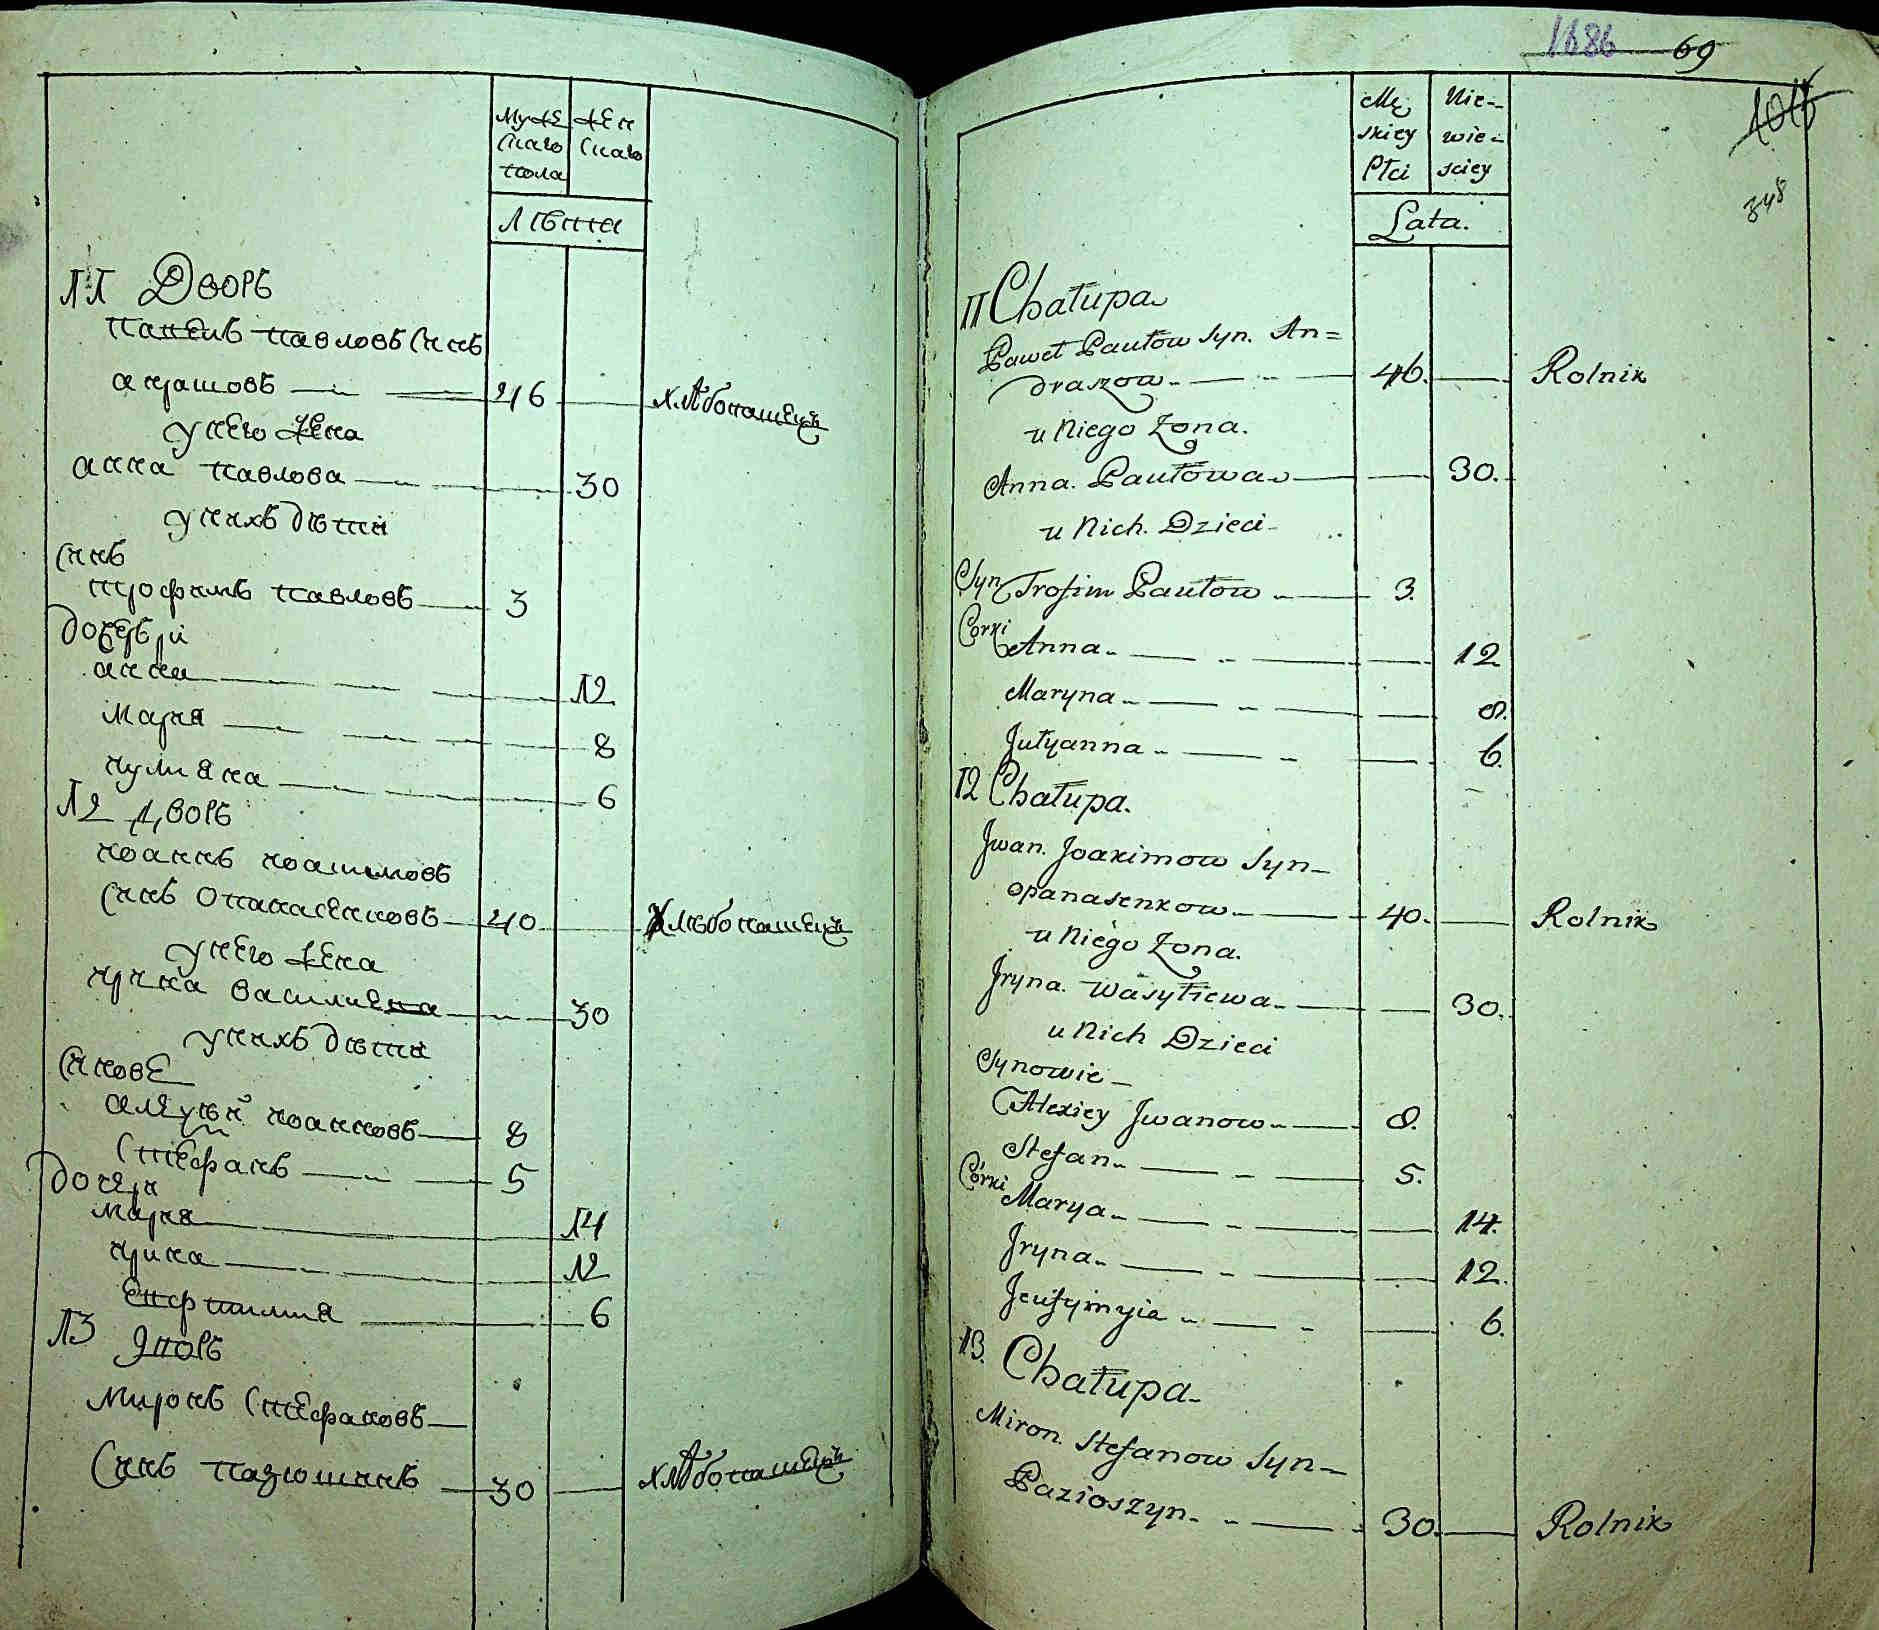 Муже
скаго
пола
жен
скаго
Лѣта
11 Дворъ
павловъ Синъ
андрашовъ 46 хлѣбопашецъ
у него жена
анна павлова 30
у нихъ дѣти
Синъ
трофимъ павловъ 3
дочери
анна 12
Мария 8
иулияна 6
12 дворъ
иоаннъ иоакимовъ
Синъ опанасенковъ 40 хлѣбопашецъ
у него жена
ирина василиева 30
у нихъ дѣти
Синове
алеѯѣй иоанновъ 8
Стефанъ 5
дочери
Мария 14
ирина 12
Евфимия 6
13 Дворъ
Миронъ Стефановъ
Синъ пазюшинъ 30 хлѣбопашецъ
1686 69
1015
348
Mę
skiey
Płci
Nie-
wie-
sciey
Lata.
11 Chałupa
Paweł Pawłow Syn. An=
draszow 46. Rolnik
u Niego Zona.
Anna. Pawłowa 30.
u Nich. Dzieci
Syn Trofim Pawłow 3.
Corki Anna. 12
Maryna 8.
Julyanna 6.
12 Chałupa.
Jwan. Joakimow Syn
opanasenkow 40. Rolnik
u Niego Zona.
Jryna. Wasyliewa 30.
u Nich Dzieci
Synowie
Alexiey Jwanow 8.
Stefan 5.
Córki Marya 14.
Jryna 12.
Jeufymyia 6.
13. Chałupa
Miron. Stefanow Syn
Pazioszyn 30. Rolnik